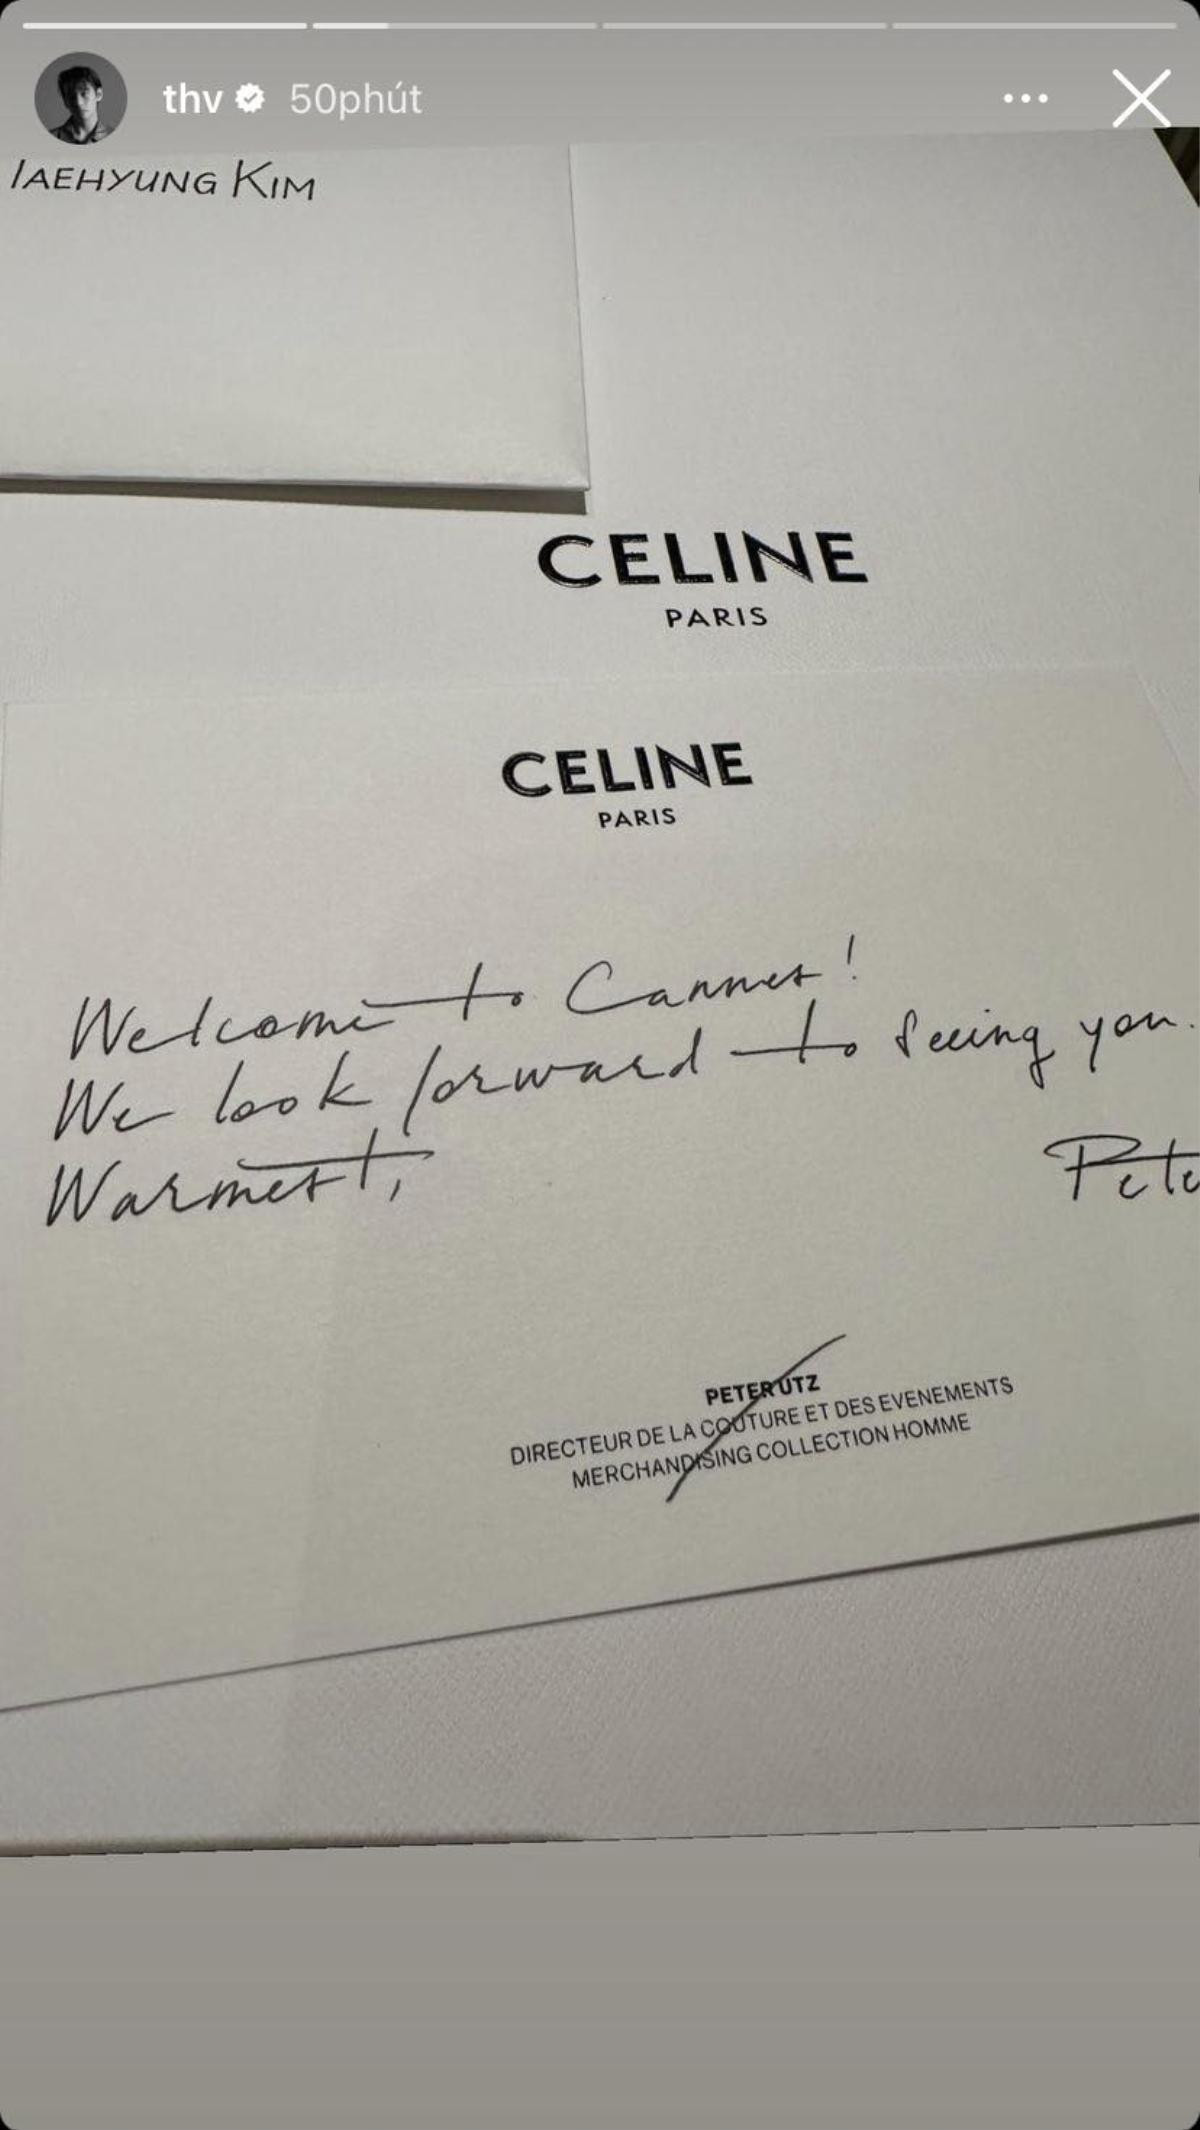 thv 50phút
TAEHYUNG KIM
CELINE
PARIS
CELINE
PARIS
Welcome to Cannes!
We look forward to seeing you.
Warmest,
Pete
PETER UTZ
DIRECTEUR DE LA COUTURE ET DES EVENEMENTS
MERCHANDISING COLLECTION HOMME